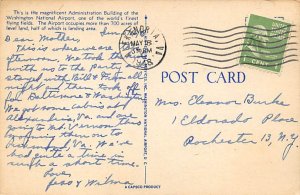 This is the magnificent Administration Building of the
Washington National Airport, one of the world's finest
flying fields. The Airport occupies more than 700 acres of
level land, half of which is landing area.
Dear Mother,
This is where we are
afternoon. We took the
with us to the
stayed with Bill & 
night and then took off
Baltimore &
We got some cabins at
Alexandria, Va. and are
going to Mt Vernon. This
Va. We've
had quite a time in
such a short time.
Love,
Jess & Wilma
A CAPSCO PRODUCT
VA.
MAY 28
PM
1 CENT
POST CARD
Mrs. Eleanor Burke
1 Eldorado Place
Rochester 13, N.Y.